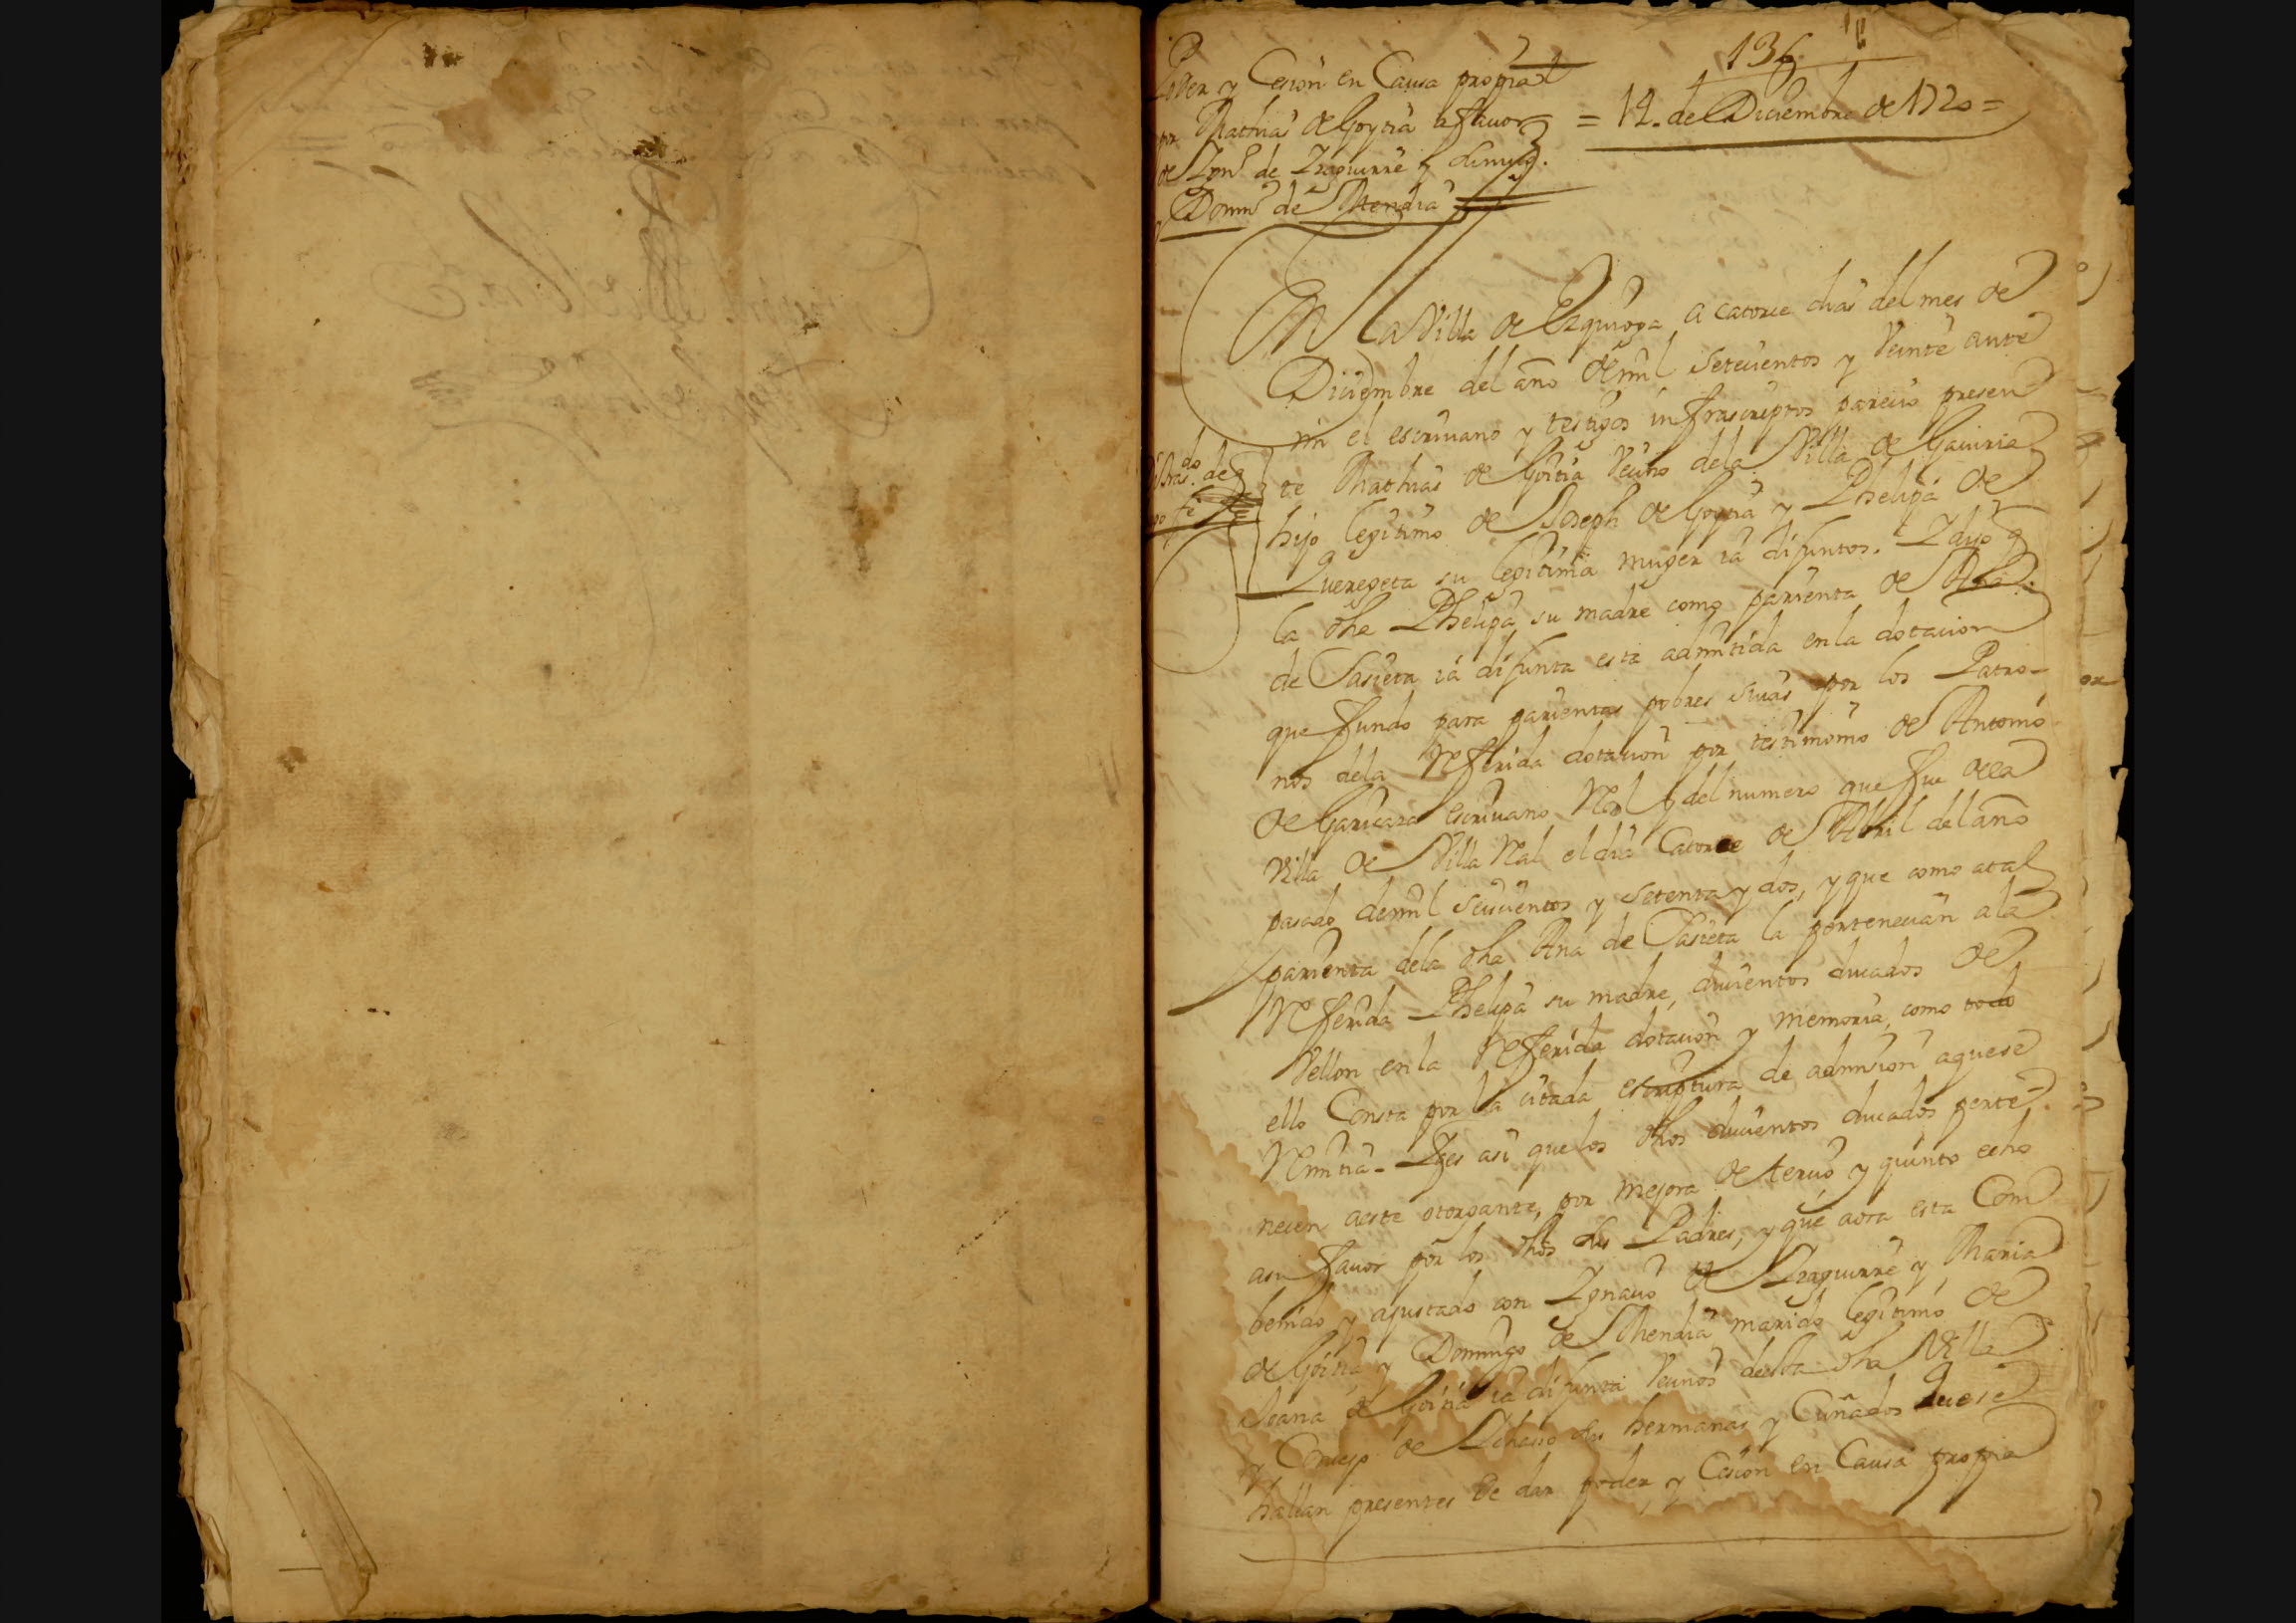 136
Poder y Cesion en Causa propia
por Mathias de Goytia a fauor
de Ign.º de Izaguirre y
Domin.º de Mendia
= 14. de Diciembre de 1720 =
En la Villa de Ezquioga a catorce dias del mes de
Diciembre del año de mil setecientos y veinte ante
mi el escriuano y testigos infrascriptos parecio presen
te Mathias de Goitia vecino dela Villa de Gauiria
hijo legitimo de Joseph de Goytia y Phelipa de
Querexeta su legitima muger ia difuntos. I dijo q
la dha Phelipa su madre como parienta de Ana
de Sasieta ia difunta esta admitida en la dotacion
que fundo para parientas pobres suias por los Patro-
nos dela Referida dotacion por testimonio de Antonio
de Garicano escriuano Real y del numero que fue dela
villa de Villa Real el dia Catorce de Abril del año
pasado de mil seiscientos y setenta y dos, y que como atal
parienta dela dha Ana de Sasieta la pertenecian ala
Referida Phelipa su madre, ducientos ducados de
Vellon en la Referida dotacion y memoria, como todo
ello Consta por la citada escriptura de admision aquese
Remitia - I es asi que los dhos ducientos ducados perte
necen aeste otorgante, por mejora de tercio y quinto echo
asu fauor por los dhos sus Padres, y que aora esta Com
benido y ajustado con Ignacio de Izaguirre y Maria
de Goitia y Domingo de Mendia marido legitimo de
Joana de Goitia ia difunta vecinos desta dha Villa
y Concejo de Ichaso sus hermanas y Cuñados que se
hallan presentes de dar poder y Cesion en Causa propia